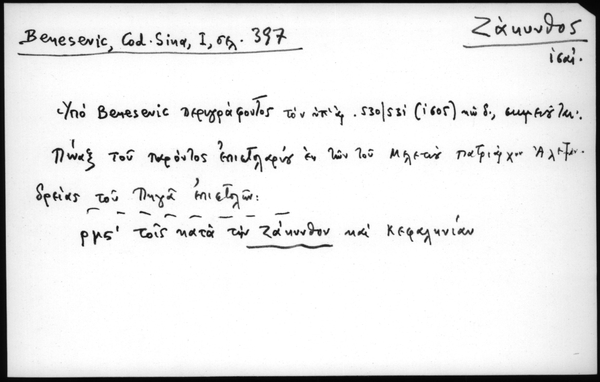 Benesevic, Cod. Sina, I, σελ. 397
Ζάκυνθος
ἰσαί.
Ὑπό Benesevic περιγράφοντος τόν ὑπ' ἀρ. 530/531 (1605) κώδ., σημειοῦται:
Πίναξ τοῦ παρόντος ἐπιστολαρίου ἐκ τῶν τοῦ Μελετίου πατριάρχου Ἀλεξαν-
δρείας τοῦ Πηγᾶ ἐπιστολῶν:
ρμς' τοῖς κατὰ τὴν Ζάκυνθον καὶ Κεφαληνίαν